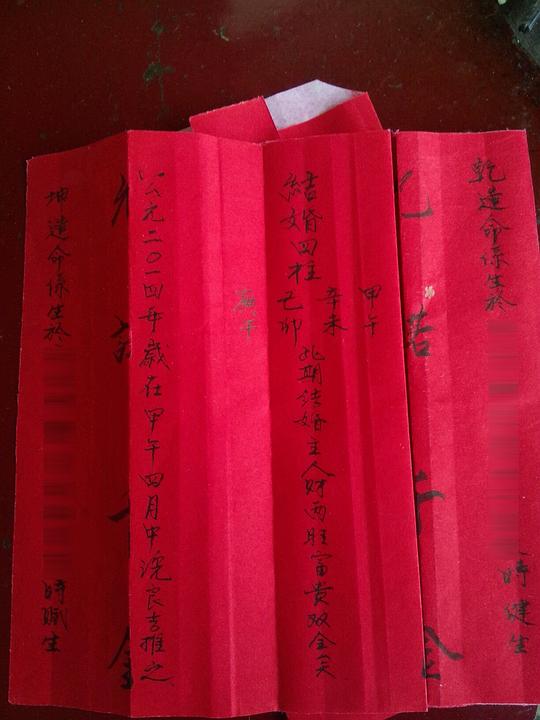 乾造命係生於
時健生
甲午
辛未
結婚四柱
己卯
此期结婚主人财两旺富贵双全矣
庚午
公元二〇一四年歲在甲午四月中浣良吉推之
坤造命係生於
時赋生